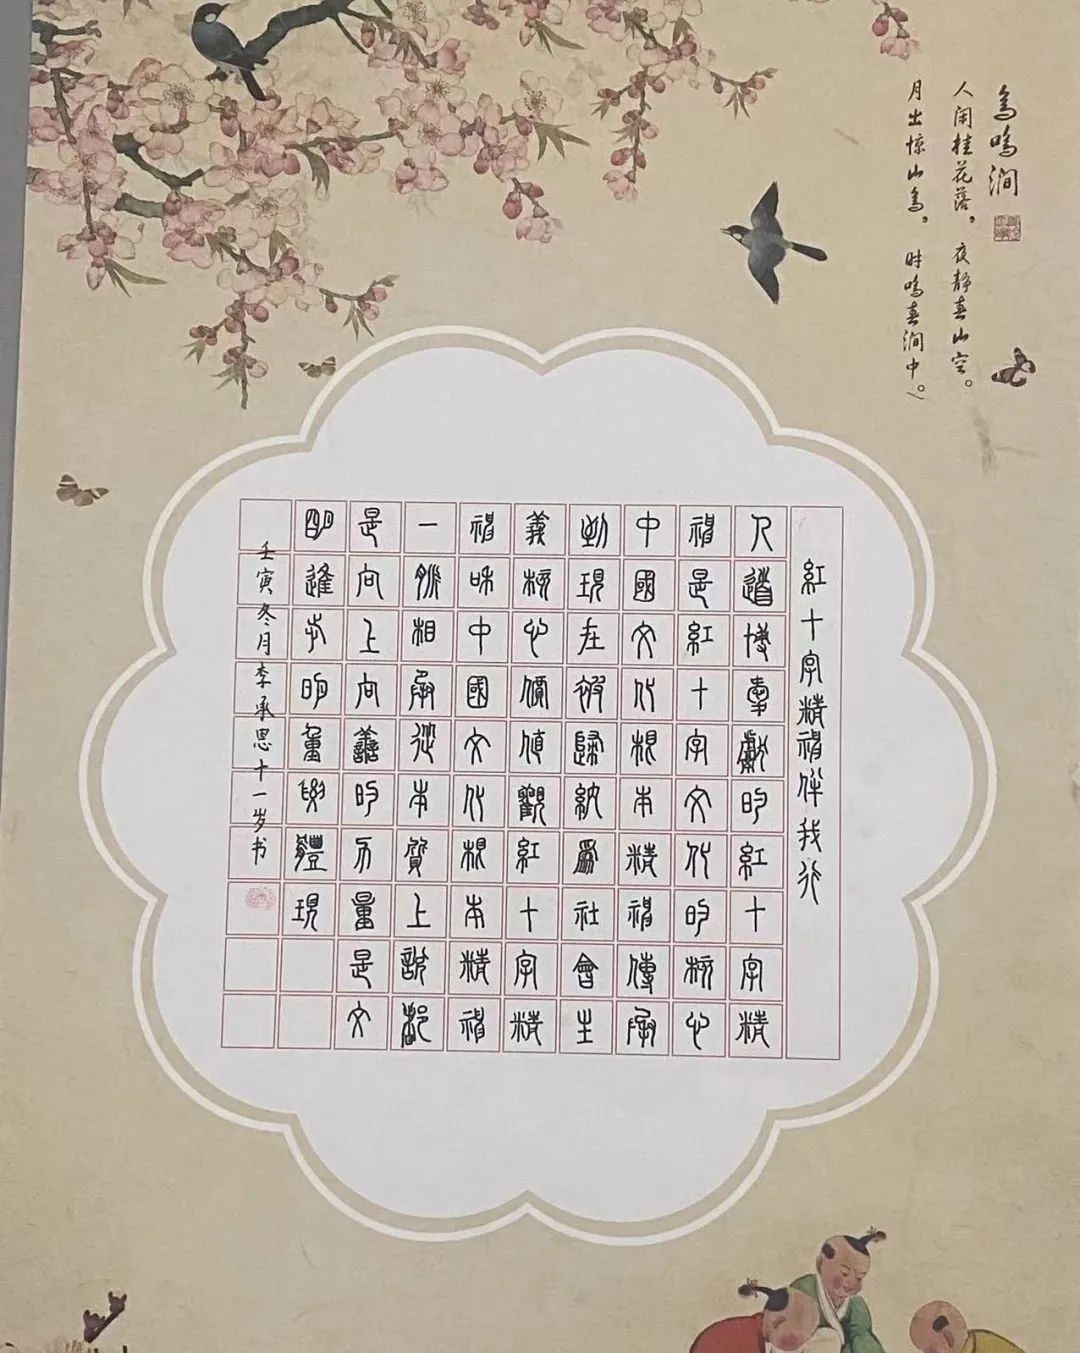 鸟鸣涧
人闲桂花落。夜静春山空。
月出惊山鸟。时鸣春涧中。
紅十字精神伴我行
人道博奉獻的紅十字精
神是紅十字文化的核心
中國文化根本精神傳承
到現在被歸納爲社會主
義核心價值觀紅十字精
神和中國文化根本精神
一脈相承從本質上說都
是向上向善的力量是文
明進步的重要體現
壬寅冬月李承思十一岁书